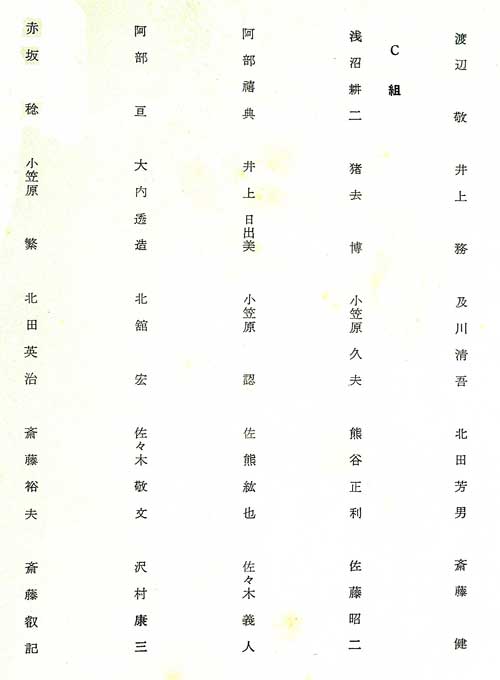 渡辺敬 井上務 及川清吾 北田芳男 斎藤健
C組
浅沼耕二 猪去博 小笠原久夫 熊谷正利 佐藤昭二
阿部禧典 井上日出美 小笠原認 佐熊紘也 佐々木義人
阿部亘 大内透造 北舘宏 佐々木敬文 沢村康三
赤坂稔 小笠原繁 北田英治 斎藤裕夫 斎藤叡記